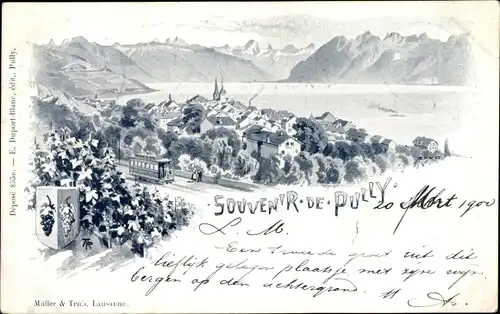 Déposé 855o. — E. Dupert-Blanc, édit., Pully.
SOUVENIR · DE · PULLY
20 Maart 1900
L. M.
Een tweede groet uit dit
lieflijk gelegen plaatsje met zijn wijn
bergen op den achtergron.
M
Müller & Trüb, Lausanne.